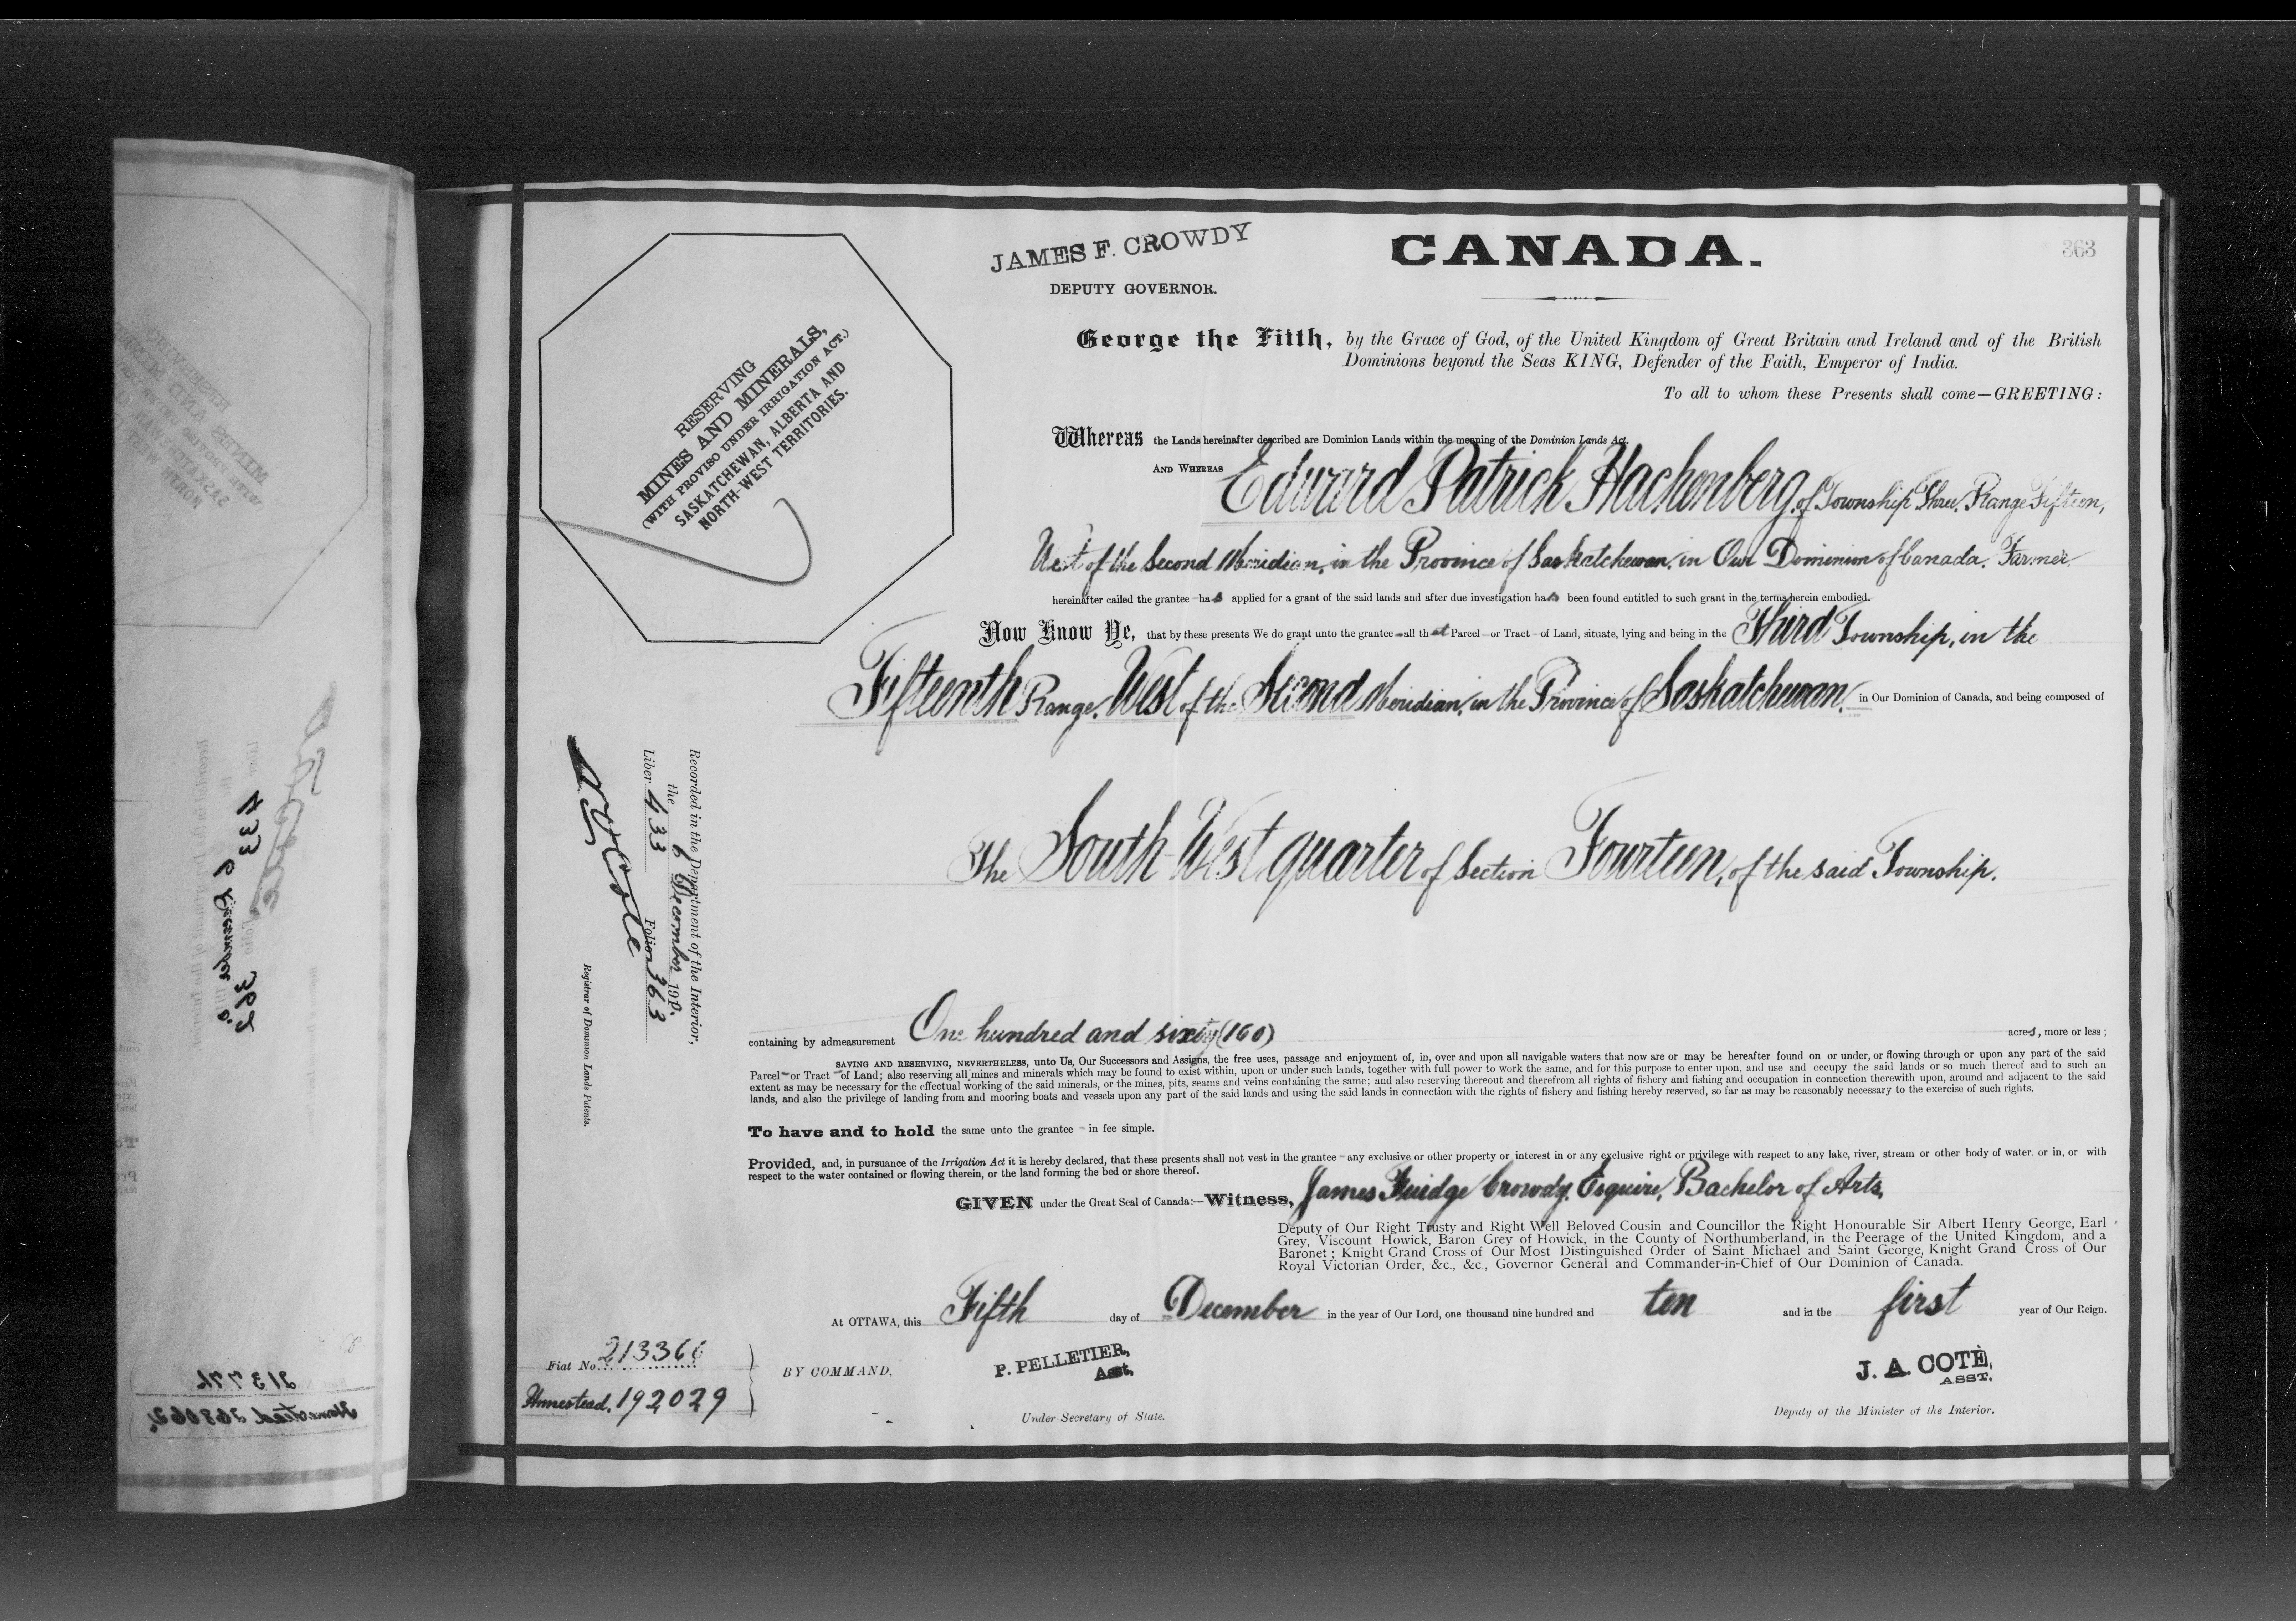 JAMES F. CROWDY
DEPUTY GOVERNOR.
CANADA.
363
RESERVING
MINES AND MINERALS,
(WITH PROVISO UNDER IRRIGATION ACT.)
SASKATCHEWAN, ALBERTA AND
NORTH-WEST TERRITORIES.
George the Fifth, by the Grace of God, of the United Kingdom of Great Britain and Ireland and of the British
Dominions beyond the Seas KING, Defender of the Faith, Emperor of India.
To all to whom these Presents shall come—GREETING:
Whereas the Lands hereinafter described are Dominion Lands within the meaning of the Dominion Lands Act.
AND WHEREAS Edward Patrick Hachenberg, of Township Three, Range Fifteen,
West of the Second Meridian, in the Province of Saskatchewan, in Our Dominion of Canada, Farmer
hereinafter called the grantee has applied for a grant of the said lands and after due investigation has been found entitled to such grant in the terms herein embodied.
Now Know Ye, that by these presents We do grant unto the grantee all that Parcel or Tract of Land, situate, lying and being in the Third Township, in the
Fifteenth Range, West of the Second Meridian, in the Province of Saskatchewan, in Our Dominion of Canada, and being composed of
The South West quarter of Section Fourteen, of the said Township.
Recorded in the Department of the Interior,
the 6 December 1910.
Liber 433 Folion 363
Registrar of Dominion Lands Patents.
containing by admeasurement One hundred and sixty (160) acres, more or less;
SAVING AND RESERVING, NEVERTHELESS, unto Us, Our Successors and Assigns, the free uses, passage and enjoyment of, in, over and upon all navigable waters that now are or may be hereafter found on or under, or flowing through or upon any part of the said
Parcel or Tract of Land; also reserving all mines and minerals which may be found to exist within, upon or under such lands, together with full power to work the same, and for this purpose to enter upon, and use and occupy the said lands or so much thereof and to such an
extent as may be necessary for the effectual working of the said minerals, or the mines, pits, seams and veins containing the same; and also reserving thereout and therefrom all rights of fishery and fishing and occupation in connection therewith upon, around and adjacent to the said
lands, and also the privilege of landing from and mooring boats and vessels upon any part of the said lands and using the said lands in connection with the rights of fishery and fishing hereby reserved, so far as may be reasonably necessary to the exercise of such rights.
To have and to hold the same unto the grantee in fee simple.
Provided, and, in pursuance of the Irrigation Act it is hereby declared, that these presents shall not vest in the grantee any exclusive or other property or interest in or any exclusive right or privilege with respect to any lake, river, stream or other body of water. or in, or with
respect to the water contained or flowing therein, or the land forming the bed or shore thereof.
GIVEN under the Great Seal of Canada:—Witness, James Fluidge Crowdy, Esquire, Bachelor of Arts,
Deputy of Our Right Trusty and Right Well Beloved Cousin and Councillor the Right Honourable Sir Albert Henry George, Earl
Grey, Viscount Howick, Baron Grey of Howick, in the County of Northumberland, in the Peerage of the United Kingdom, and a
Baronet; Knight Grand Cross of Our Most Distinguished Order of Saint Michael and Saint George, Knight Grand Cross of Our
Royal Victorian Order, &c., &c., Governor General and Commander-in-Chief of Our Dominion of Canada.
At OTTAWA, this Fifth day of December in the year of Our Lord, one thousand nine hundred and ten and in the first year of Our Reign.
Fiat No.
Homestead, 192029
BY COMMAND,
P. PELLETIER,
Asst.
Under-Secretary of State.
J. A. COTÉ,
ASST.
Deputy of the Minister of the Interior.